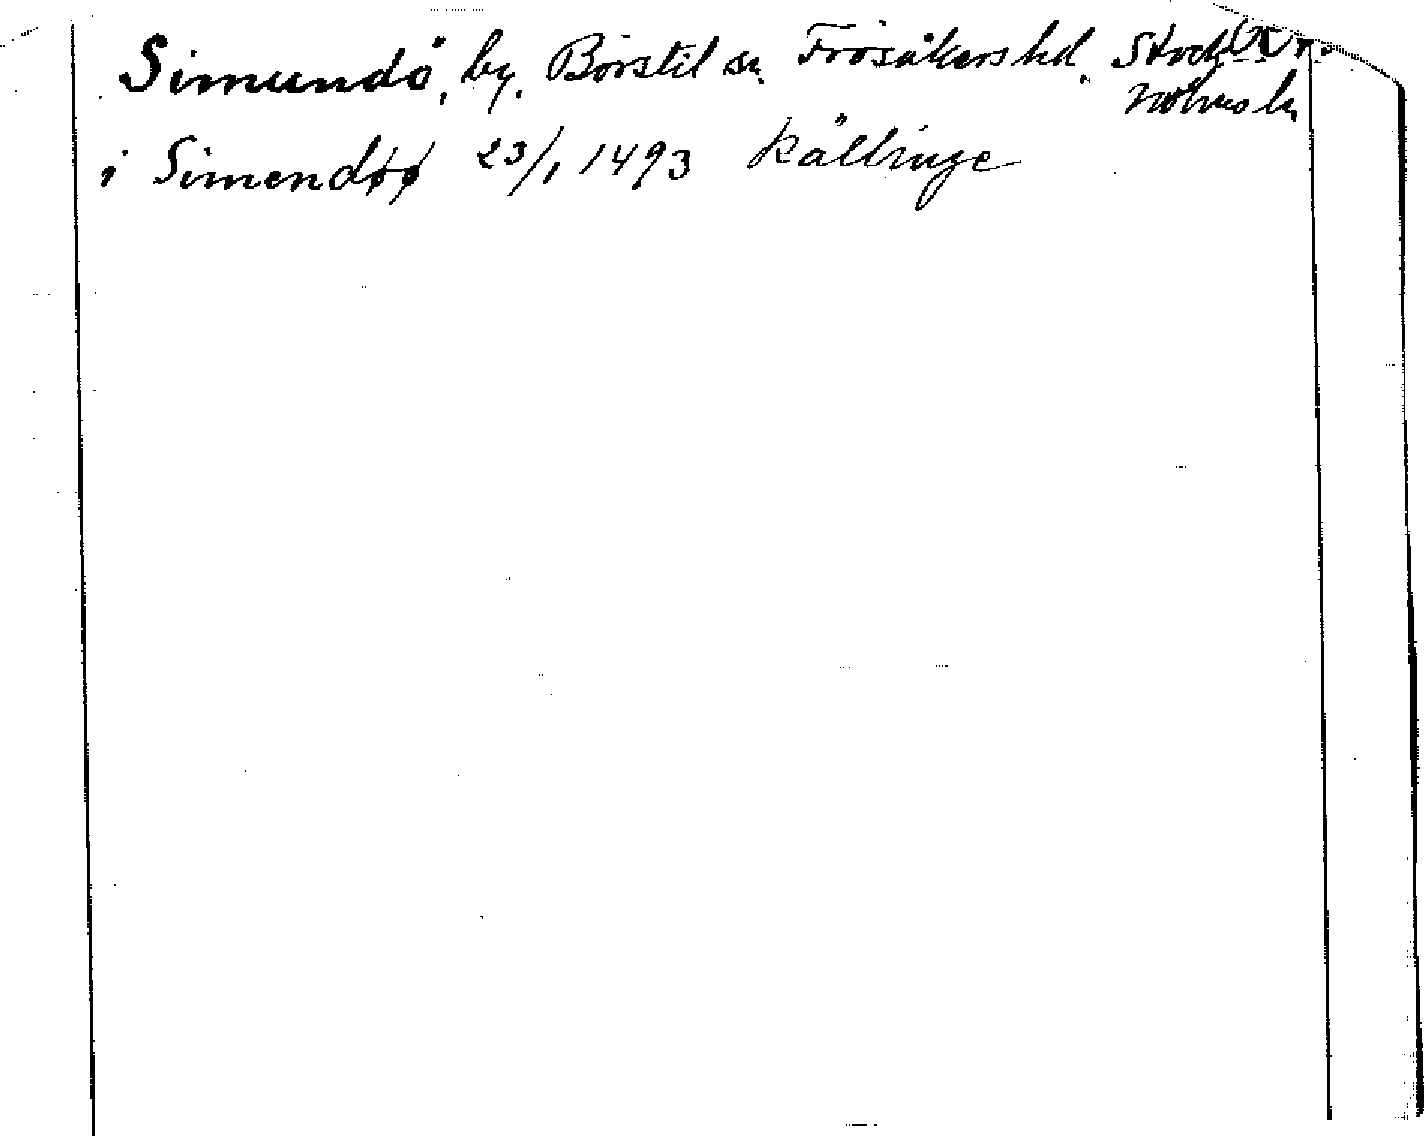 Simundö, by, Börstil sn. Frösåkers hd. Stock
holms ln
i Simendøø 23/1 1493 Källinge